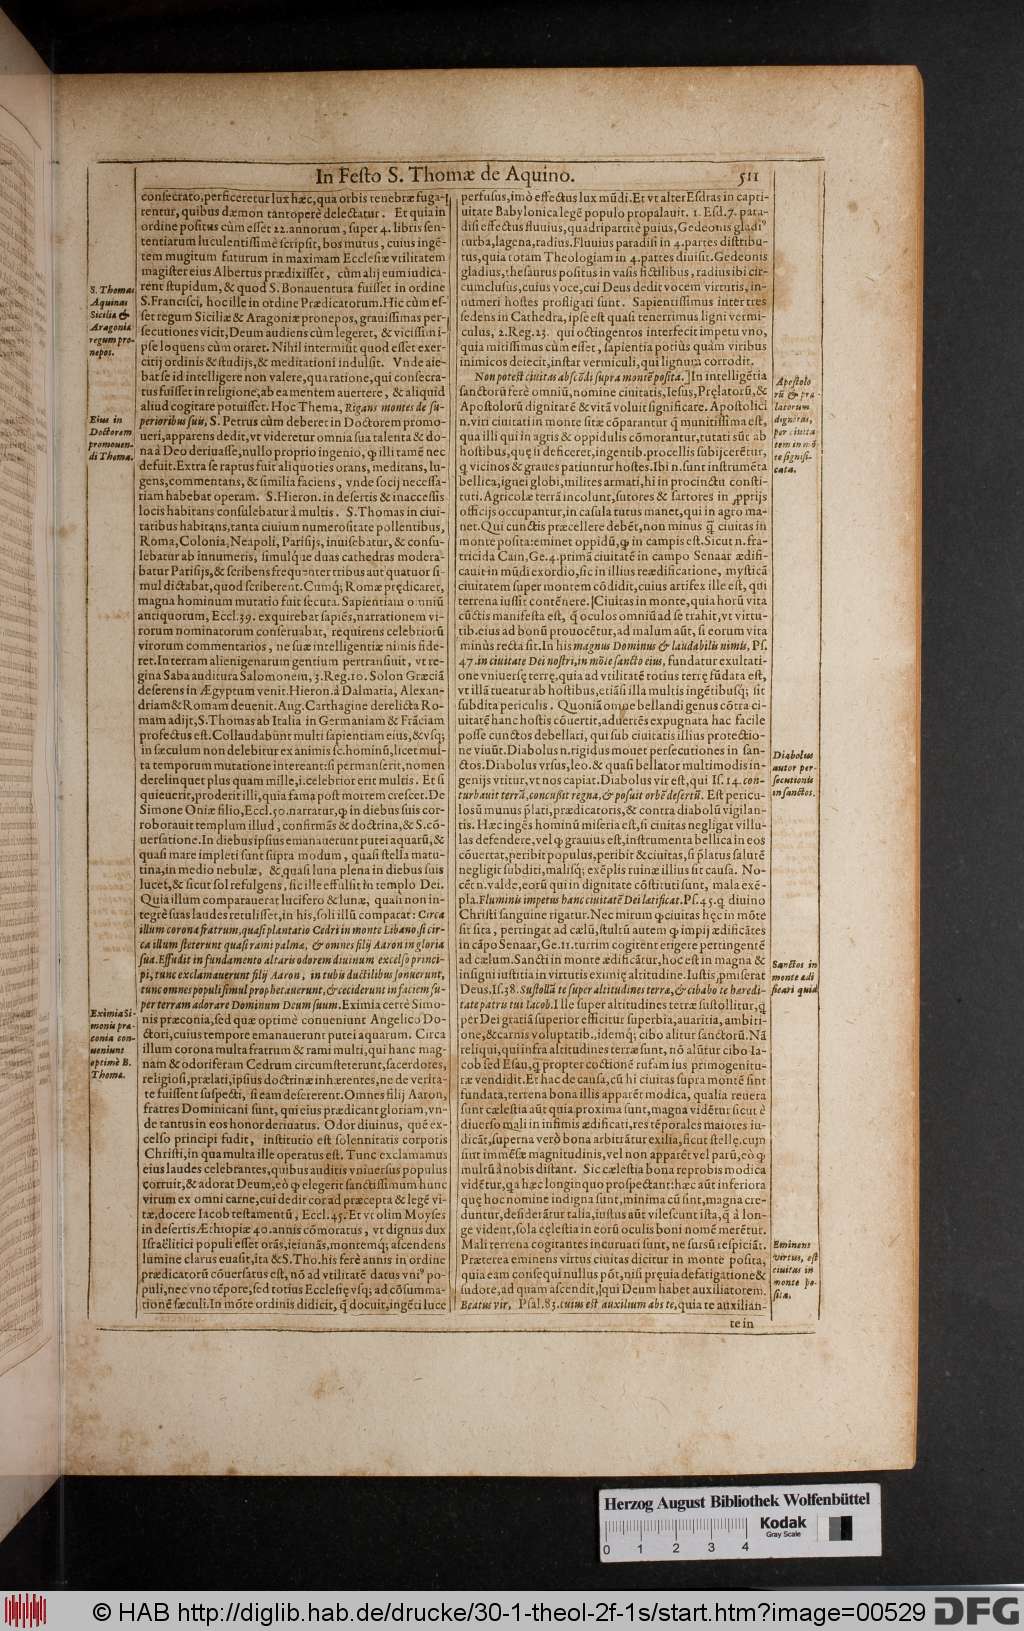 In Festo S. Thomæ de Aquino.
511
consecrato, perficeretur lux hæc, qua orbis tenebræ fuga-
rentur, quibus dæmon tantopere delectatur. Et quia in
ordine positus cùm esset 22. annorum, super 4. libris sen-
tentiarum luculentissimè scripsit, bos mutus, cuius ingẽ-
tem mugitum futurum in maximam Ecclesiæ vtilitatem
magister eius Albertus prædixisset, cùm alij eum iudica-
rent stupidum, & quod S. Bonauentura fuisset in ordine
S. Francisci, hoc ille in ordine Prædicatorum. Hic cùm es-
set regum Siciliæ & Aragoniæ pronepos, grauissimas per-
secutiones vicit, Deum audiens cùm legeret, & vicissim i-
pse loquens cùm oraret. Nihil intermisit quod esset exer-
citij ordinis & studijs, & meditationi indulsit. Vnde aie-
bat se id intelligere non valere, qua ratione, qui consecra-
tus fuisset in religione, ab ea mentem auertere, & aliquid
aliud cogitare potuisset. Hoc Thema, Rigans montes de su-
perioribus suis, S. Petrus cùm deberet in Doctorem promo-
ueri, apparens dedit, vt videretur omnia sua talenta & do-
na à Deo deriuasse, nullo proprio ingenio, ꝙ illi tamẽ nec
defuit. Extra se raptus fuit aliquoties orans, meditans, lu-
gens, commentans, & similia faciens, vnde socij necessa-
riam habebat operam. S. Hieron. in desertis & inaccessis
locis habitans consulebatur à multis. S. Thomas in ciui-
tatibus habitans, tanta ciuium numerositate pollentibus,
Roma, Colonia, Neapoli, Parisijs, inuisebatur, & consu-
lebatur ab innumeris, simulq́ue duas cathedras modera-
batur Parisijs, & scribens frequenter tribus aut quatuor si-
mul dictabat, quod scriberent. Cumq́; Romæ prędicaret,
magna hominum mutatio fuit secuta. Sapientiam omniũ
antiquorum, Eccl. 39. exquirebat sapiẽs, narrationem vi-
rorum nominatorum conseruabat, requirens celebriorũ
virorum commentarios, ne suæ intelligentiæ nimis fide-
ret. In terram alienigenarum gentium pertransiuit, vt re-
gina Saba auditura Salomonem, 3. Reg. 10. Solon Græciã
deserens in Ægyptum venit. Hieron. à Dalmatia, Alexan-
driam & Romam deuenit. Aug. Carthagine derelicta Ro-
mam adijt, S. Thomas ab Italia in Germaniam & Frãciam
profectus est. Collaudabũnt multi sapientiam eius, & vsq;
in sæculum non delebitur ex animis sc. hominũ, licet mul-
ta temporum mutatione intereant: si permanserit, nomen
derelinquet plus quam mille, i. celebrior erit multis. Et si
quieuerit, proderit illi, quia fama post mortem crescet. De
Simone Oniæ filio, Eccl. 50. narratur, ꝙ in diebus suis cor-
roborauit templum illud, confirmãs & doctrina, & S. cõ-
uersatione. In diebus ipsius emanauerunt putei aquarũ, &
quasi mare impleti sunt supra modum, quasi stella matu-
tina, in medio nebulæ, & quasi luna plena in diebus suis
lucet, & sicut sol refulgens, sic ille effulsit in templo Dei.
Quia illum comparauerat lucifero & lunæ, quasi non in-
tegrè suas laudes retulisset, in his, soli illũ comparat: Circa
illum corona fratrum, quasi plantatio Cedri in monte Libano, sic cir-
ca illum steterunt quasi rami palmæ, & omnes filij Aaron in gloria
sua. Effudit in fundamento altaris odorem diuinum excelso princi-
pi, tunc exclamauerunt filij Aaron, in tubis ductilibus sonuerunt,
tunc omnes populi simul prophetauerunt, & ceciderunt in faciem su-
per terram adorare Dominum Deum suum. Eximia certè Simo-
nis præconia, sed quæ optimè conueniunt Angelico Do-
ctori, cuius tempore emanauerunt putei aquarum. Circa
illum corona multa fratrum & rami multi, qui hanc mag-
nam & odoriferam Cedrum circumsteterunt, sacerdotes,
religiosi, prælati, ipsius doctrinæ inhærentes, ne de verita-
te fuissent suspecti, si eam desererent. Omnes filij Aaron,
fratres Dominicani sunt, qui eius prædicant gloriam, vn-
de tantus in eos honor deriuatus. Odor diuinus, quẽ ex-
celso principi fudit, institutio est solennitatis corporis
Christi, in qua multa ille operatus est. Tunc exclamamus
eius laudes celebrantes, quibus auditis vniuersus populus
corruit, & adorat Deum, eò ꝙ elegerit sanctissimum hunc
virum ex omni carne, cui dedit cor ad præcepta & legẽ vi-
tæ, docere Iacob testamentũ, Eccl. 45. Et vt olim Moyses
in desertis Æthiopiæ 40. annis cõmoratus, vt dignus dux
Israëlitici populi esset orãs, ieiunãs, montemq́; ascendens
lumine clarus euasit, ita & S. Tho. his ferè annis in ordine
prædicatorũ cõuersatus est, nõ ad vtilitatẽ datus vniꝰ po-
puli, nec vno tẽpore, sed totius Ecclesię vsq; ad cõsumma-
tionẽ sæculi. In mõte ordinis didicit, q̃ docuit, ingẽti luce
S. Thomas
Aquinas
Siciliæ &
Aragoniæ
regum pro-
nepos.
Eius in
Doctorem
promouen-
di Thema.
Eximia Si-
monis præ-
conia con-
ueniunt
optimè B.
Thomæ.
perfusus, imò effectus lux mũdi. Et vt alter Esdras in capti-
uitate Babylonica legẽ populo propalauit. 1. Esd. 7. para-
disi effectus fluuius, quadripartitè puius, Gedeonis gladiꝰ
turba, lagena, radius. Fluuius paradisi in 4. partes distribu-
tus, quia totam Theologiam in 4. partes diuisit. Gedeonis
gladius, thesaurus positus in vasis fictilibus, radius ibi cir-
cumclusus, cuius voce, cui Deus dedit vocem virtutis, in-
numeri hostes profligati sunt. Sapientissimus inter tres
sedens in Cathedra, ipse est quasi tenerrimus ligni vermi-
culus, 2. Reg. 23. qui octingentos interfecit impetu vno,
quia mitissimus cùm esset, sapientia potiùs quàm viribus
inimicos deiecit, instar vermiculi, qui lignum corrodit.
Non potest ciuitas abscõdi supra montẽ posita.] In intelligẽtia
sanctorũ ferè omniũ, nomine ciuitatis, Iesus, Pręlatorũ, &
Apostolorũ dignitatẽ & vitã voluit significare. Apostolici
n. viri ciuitati in monte sitæ cõparantur q̃ munitissima est,
qua illi qui in agris & oppidulis cõmorantur, tutati sũt ab
hostibus, quę si deficeret, ingentib. procellis subijcerẽtur,
q̃ vicinos & graues patiuntur hostes. Ibi n. sunt instrumẽta
bellica, ignei globi, milites armati, hi in procinctu consti-
tuti. Agricolæ terrã incolunt, sutores & sartores in ꝓprijs
officijs occupantur, in casula tutus manet, qui in agro ma-
net. Qui cunctis præcellere debẽt, non minus q̃ ciuitas in
monte posita: eminet oppidũ, ꝙ in campis est. Sicut n. fra-
tricida Cain, Ge. 4. primã ciuitatẽ in campo Senaar ædifi-
cauit in mũdi exordio, sic in illius reædificatione, mysticã
ciuitatem super montem cõdidit, cuius artifex ille est, qui
terrena iussit contẽnere. Ciuitas in monte, quia horũ vita
cũctis manifesta est, q̃ oculos omniũ ad se trahit, vt virtu-
tib. eius ad bonũ prouocẽtur, ad malum aũt, si eorum vita
minùs recta sit. In his magnus Dominus & laudabilis nimis, Ps.
47. in ciuitate Dei nostri, in mõte sancto eius, fundatur exultati-
one vniuersę terrę, quia ad vtilitatẽ totius terrę fũdata est,
vt illã tueatur ab hostibus, etiãsi illa multis ingẽtibusq́; sit
subdita periculis. Quoniã omne bellandi genus cõtra ci-
uitatẽ hanc hostis cõuertit, aduertẽs expugnata hac facile
posse cunctos debellari, qui sub ciuitatis illius protectio-
ne viuũt. Diabolus n. rigidus mouet persecutiones in san-
ctos. Diabolus vrsus, leo, & quasi bellator multimodis in-
genijs vtitur, vt nos capiat. Diabolus vir est, qui Is. 14. con-
turbauit terrã, concussit regna, & posuit orbẽ desertũ. Est pericu-
losũ munus p̃lati, prædicatoris, & contra diabolũ vigilan-
tis. Hæc ingẽs hominũ miseria est, si ciuitas negligat villu-
las defendere, vel ꝙ grauius est, instrumenta bellica in eos
cõuertat, peribit populus, peribit & ciuitas, si p̃latus salutẽ
negligit subditi, malisq́; exẽplis ruinæ illius sit causa. No-
cẽt n. valde, eorũ qui in dignitate cõstituti sunt, mala exẽ-
pla. Fluminis impetus hanc ciuitatẽ Dei lætificat. Ps. 45. q. diuino
Christi sanguine rigatur. Nec mirum ꝙ ciuitas hęc in mõte
sit sita, pertingat ad cælũ, stultũ autem ꝙ impij ædificãtes
in cãpo Senaar, Ge. 11. turrim cogitent erigere pertingentẽ
ad cælum. Sancti in monte ædificãtur, hoc est in magna &
insigni iustitia in virtutis eximię altitudine. Iustis, promiserat
Deus, Is. 58. Sustollã te super altitudines terræ, & cibabo te hæredi-
tate patris tui Iacob. Ille super altitudines terræ sustollitur, q̃
per Dei gratiã superior efficitur superbia, auaritia, ambiti-
one, & carnis voluptatib., idemq́; cibo alitur sanctorũ. Nã
reliqui, qui infra altitudines terræ sunt, nõ alũtur cibo Ia-
cob sed Esau, q̃ propter coctionẽ rufam ius primogenitu-
ræ vendidit. Et hac de causa, cũ hi ciuitas supra montẽ sint
fundata, terrena bona illis apparẽt modica, qualia reuera
sunt cælestia aũt quia proxima sunt, magna vidẽtur sicut è
diuerso mali in infimis ædificati, res tẽporales maiores iu-
dicãt, superna verò bona arbitrãtur exilia, sicut stellę, cum
sint immẽsæ magnitudinis, vel non apparẽt vel parũ, eò ꝙ
multũ à nobis distant. Sic cælestia bona reprobis modica
vidẽtur, q̃a hæc longinquo prospectant: hæc aũt inferiora
quę hoc nomine indigna sunt, minima cũ sint, magna cre-
duntur, desiderãtur talia, iustus aũt vilescunt ista, q̃ à lon-
ge vident, sola cęlestia in eorũ oculis boni nomẽ merẽtur.
Mali terrena cogitantes incuruati sunt, ne sursũ respiciãt.
Præterea eminens virtus ciuitas dicitur in monte posita,
quia eam consequi nullus põt, nisi pręuia defatigatione &
sudore, ad quam ascendit, qui Deum habet auxiliatorem.
Beatus vir, Psal. 83. cuius est auxilium abs te, quia te auxilian-
te in
Apostolo-
rũ & præ-
latorum
dignitas,
per ciuita-
tem in mõ-
te signifi-
cata.
Diabolus
autor per-
secutionis
in sanctos.
Sanctos in
monte ædi-
ficari quid.
Eminens
virtus, est
ciuitas in
monte po-
sita.
Herzog August Bibliothek Wolfenbüttel
Kodak
Gray Scale
0 1 2 3 4
© HAB http://diglib.hab.de/drucke/30-1-theol-2f-1s/start.htm?image=00529
DFG